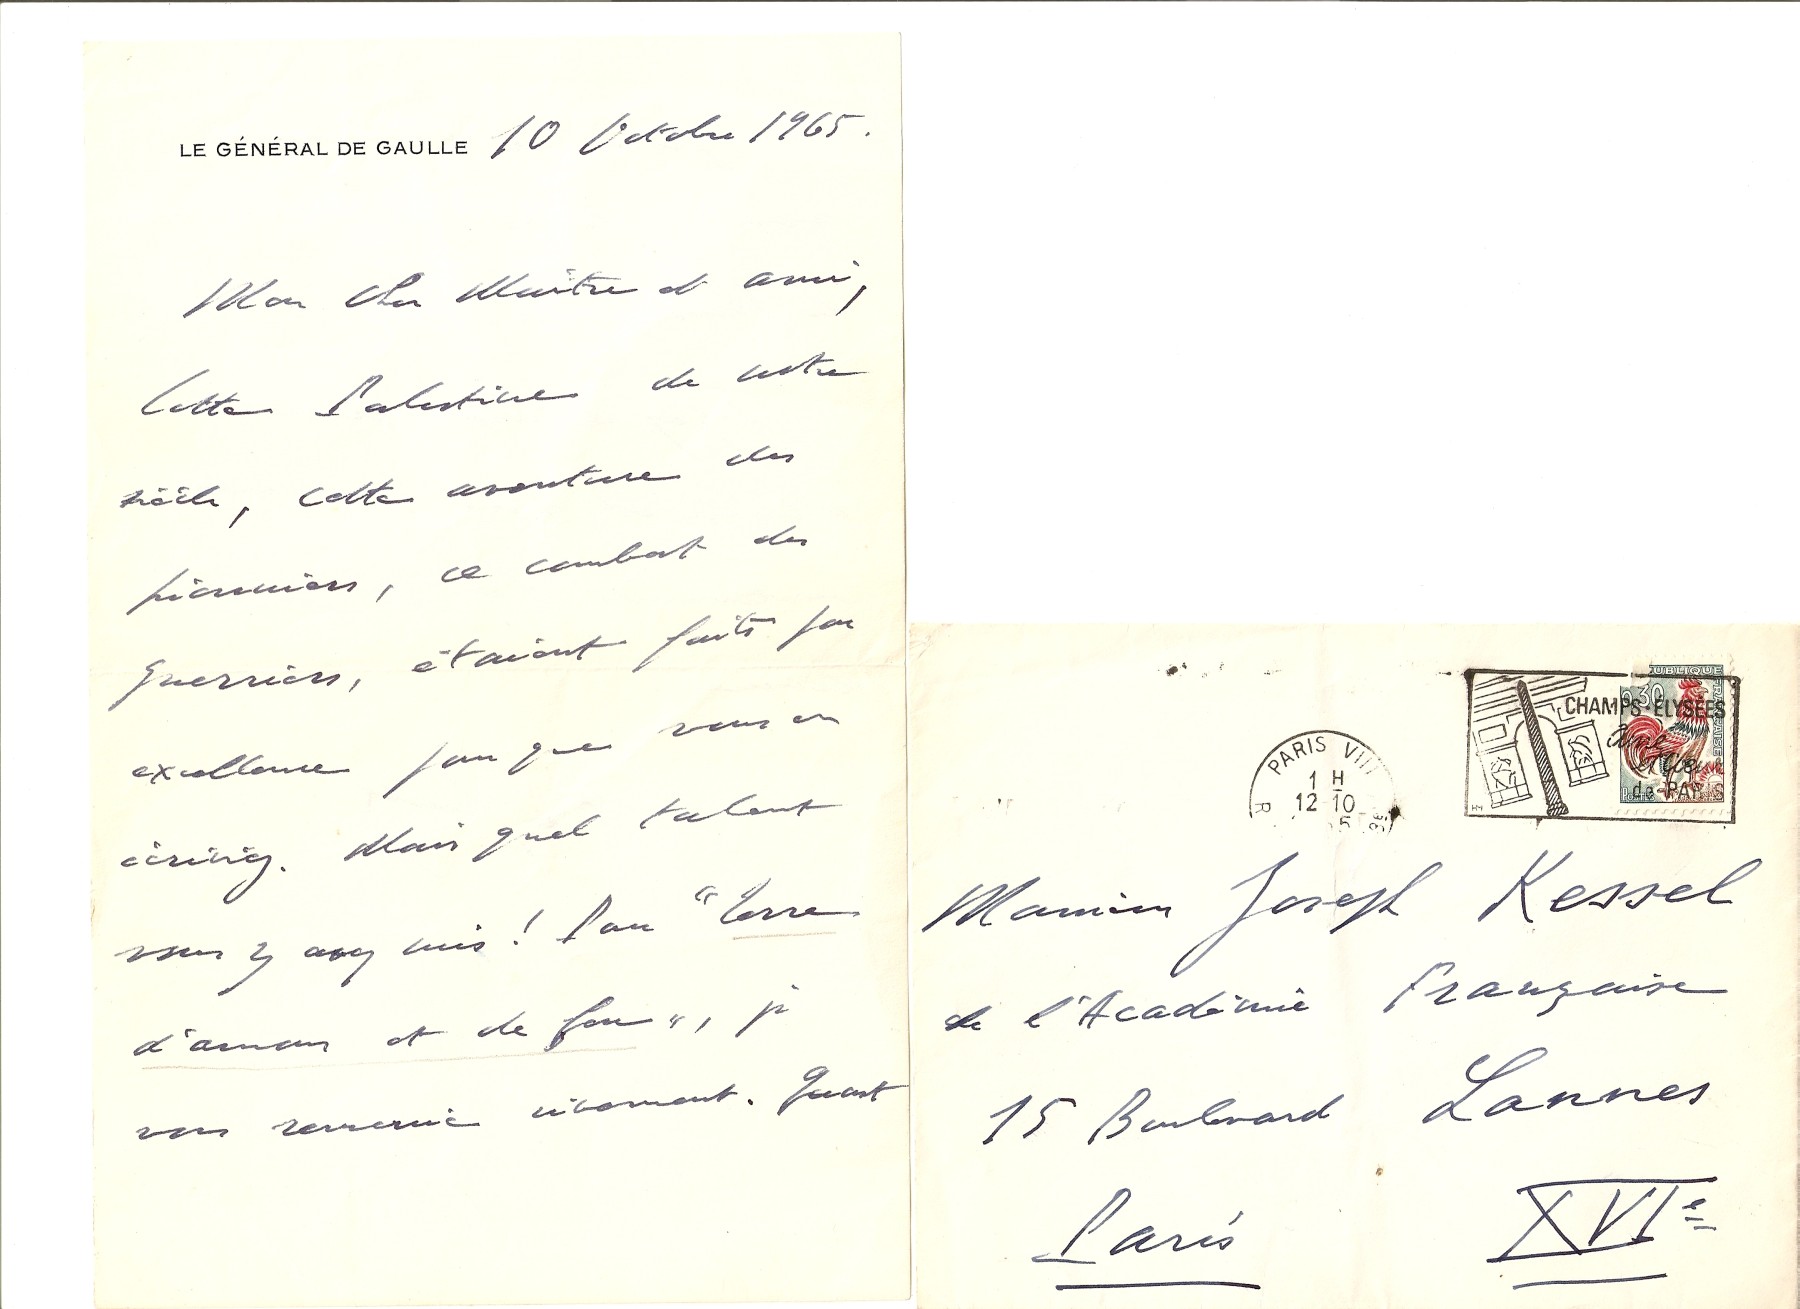 LE GÉNÉRAL DE GAULLE 10 Octobre 1965.
Mon cher Maître et ami,
Cette Palestine de notre
siècle, cette aventure des
pionniers, ce combat des
guerriers, étaient faits par
excellence pour que vous en
écriviez. Mais quel talent
vous y avez mis! Pour "Terre
d'amour et de feu", je
vous remercie vivement. Quant
UBLIQUE FRANÇAISE
0,30
CHAMPS-ÉLYSÉES
âme
et Cœur
de PARIS
PARIS VIII
1 H
12-10
R
Monsieur Joseph Kessel
de l'Académie Française
15 Boulevard Lannes
Paris XVIe